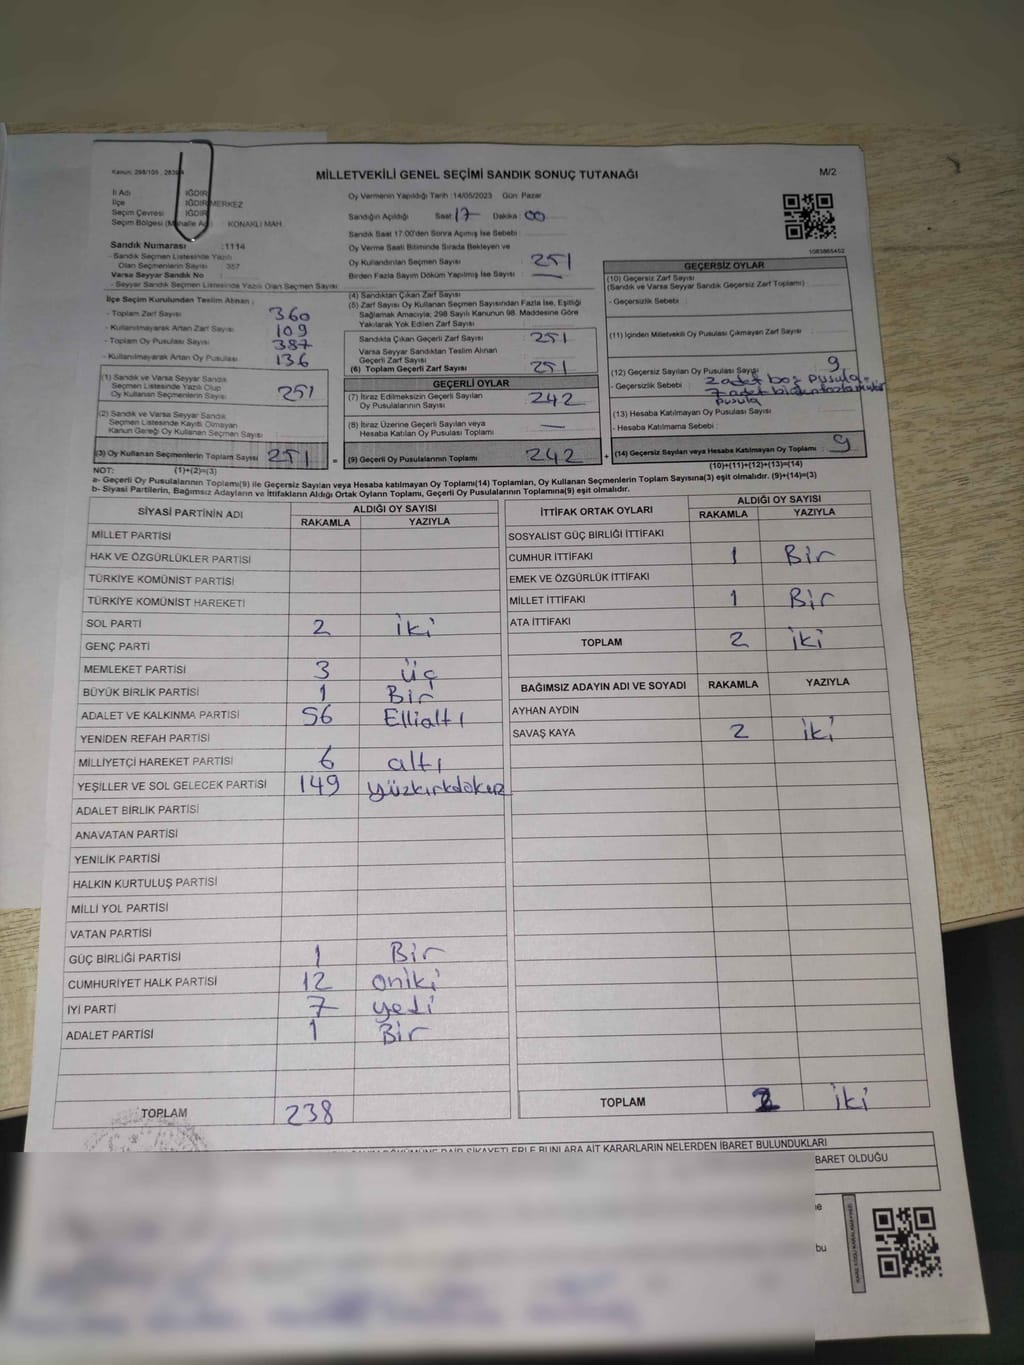 Kanun: 298/105 , 2839/4
MİLLETVEKİLİ GENEL SEÇİMİ SANDIK SONUÇ TUTANAĞI
M/2
İl Adı IĞDIR
İlçe IĞDIR MERKEZ
Seçim Çevresi IĞDIR
Seçim Bölgesi (Mahalle Adı) KONAKLI MAH.
Sandık Numarası :1114
- Sandık Seçmen Listesinde Yazılı
Olan Seçmenlerin Sayısı 357
Varsa Seyyar Sandık No
- Seyyar Sandık Seçmen Listesinde Yazılı Olan Seçmen Sayısı
İlçe Seçim Kurulundan Teslim Alınan :
- Toplam Zarf Sayısı 360
- Kullanılmayarak Artan Zarf Sayısı 109
- Toplam Oy Pusulası Sayısı 387
- Kullanılmayarak Artan Oy Pusulası 136
(1) Sandık ve Varsa Seyyar Sandık
Seçmen Listesinde Yazılı Olup
Oy Kullanan Seçmenlerin Sayısı 251
(2) Sandık ve Varsa Seyyar Sandık
Seçmen Listesinde Kayıtlı Olmayan
Kanun Gereği Oy Kullanan Seçmen Sayısı
(3) Oy Kullanan Seçmenlerin Toplam Sayısı 251
Oy Vermenin Yapıldığı Tarih :14/05/2023 Gün: Pazar
Sandığın Açıldığı Saat 17 Dakika 00
Sandık Saat 17:00'den Sonra Açılmış İse Sebebi :
Oy Verme Saati Bitiminde Sırada Bekleyen ve
Oy Kullandırılan Seçmen Sayısı 251
Birden Fazla Sayım Döküm Yapılmış İse Sayısı : —
(4) Sandıktan Çıkan Zarf Sayısı
(5) Zarf Sayısı Oy Kullanan Seçmen Sayısından Fazla İse, Eşitliği
Sağlamak Amacıyla; 298 Sayılı Kanunun 98. Maddesine Göre
Yakılarak Yok Edilen Zarf Sayısı
Sandıkta Çıkan Geçerli Zarf Sayısı 251
Varsa Seyyar Sandıktan Teslim Alınan
Geçerli Zarf Sayısı
(6) Toplam Geçerli Zarf Sayısı 251
GEÇERLİ OYLAR
(7) İtiraz Edilmeksizin Geçerli Sayılan
Oy Pusulalarının Sayısı 242
(8) İtiraz Üzerine Geçerli Sayılan veya
Hesaba Katılan Oy Pusulası Toplamı —
= (9) Geçerli Oy Pusulalarının Toplamı 242
1083865452
GEÇERSİZ OYLAR
(10) Geçersiz Zarf Sayısı
(Sandık ve Varsa Seyyar Sandık Geçersiz Zarf Toplamı) :
- Geçersizlik Sebebi :
(11) İçinden Milletvekili Oy Pusulası Çıkmayan Zarf Sayısı
(12) Geçersiz Sayılan Oy Pusulası Sayısı 9
- Geçersizlik Sebebi : 2 adet boş pusula
7 adet birden fazla mühür
pusula
(13) Hesaba Katılmayan Oy Pusulası Sayısı
- Hesaba Katılmama Sebebi :
+ (14) Geçersiz Sayılan veya Hesaba Katılmayan Oy Toplamı : 9
NOT: (1)+(2)=(3)
(10)+(11)+(12)+(13)=(14)
a- Geçerli Oy Pusulalarının Toplamı(9) ile Geçersiz Sayılan veya Hesaba Katılmayan Oy Toplamı(14) Toplamları, Oy Kullanan Seçmenlerin Toplam Sayısına(3) eşit olmalıdır. (9)+(14)=(3)
b- Siyasi Partilerin, Bağımsız Adayların ve İttifakların Aldığı Ortak Oyların Toplamı, Geçerli Oy Pusulalarının Toplamına(9) eşit olmalıdır.
SİYASİ PARTİNİN ADI ALDIĞI OY SAYISI
RAKAMLA YAZIYLA
MİLLET PARTİSİ
HAK VE ÖZGÜRLÜKLER PARTİSİ
TÜRKİYE KOMÜNİST PARTİSİ
TÜRKİYE KOMÜNİST HAREKETİ
SOL PARTİ 2 iki
GENÇ PARTİ
MEMLEKET PARTİSİ 3 üç
BÜYÜK BİRLİK PARTİSİ 1 Bir
ADALET VE KALKINMA PARTİSİ 56 Ellialtı
YENİDEN REFAH PARTİSİ
MİLLİYETÇİ HAREKET PARTİSİ 6 altı
YEŞİLLER VE SOL GELECEK PARTİSİ 149 yüzkırkdokuz
ADALET BİRLİK PARTİSİ
ANAVATAN PARTİSİ
YENİLİK PARTİSİ
HALKIN KURTULUŞ PARTİSİ
MİLLİ YOL PARTİSİ
VATAN PARTİSİ
GÜÇ BİRLİĞİ PARTİSİ 1 Bir
CUMHURİYET HALK PARTİSİ 12 oniki
İYİ PARTİ 7 yedi
ADALET PARTİSİ 1 Bir
TOPLAM 238
İTTİFAK ORTAK OYLARI ALDIĞI OY SAYISI
RAKAMLA YAZIYLA
SOSYALİST GÜÇ BİRLİĞİ İTTİFAKI
CUMHUR İTTİFAKI 1 Bir
EMEK VE ÖZGÜRLÜK İTTİFAKI
MİLLET İTTİFAKI 1 Bir
ATA İTTİFAKI
TOPLAM 2 iki
BAĞIMSIZ ADAYIN ADI VE SOYADI RAKAMLA YAZIYLA
AYHAN AYDIN
SAVAŞ KAYA 2 iki
TOPLAM 2 iki
DÖKÜMÜNE DAİR ŞİKAYETLERLE BUNLARA AİT KARARLARIN NELERDEN İBARET BULUNDUKLARI
BARET OLDUĞU
bu